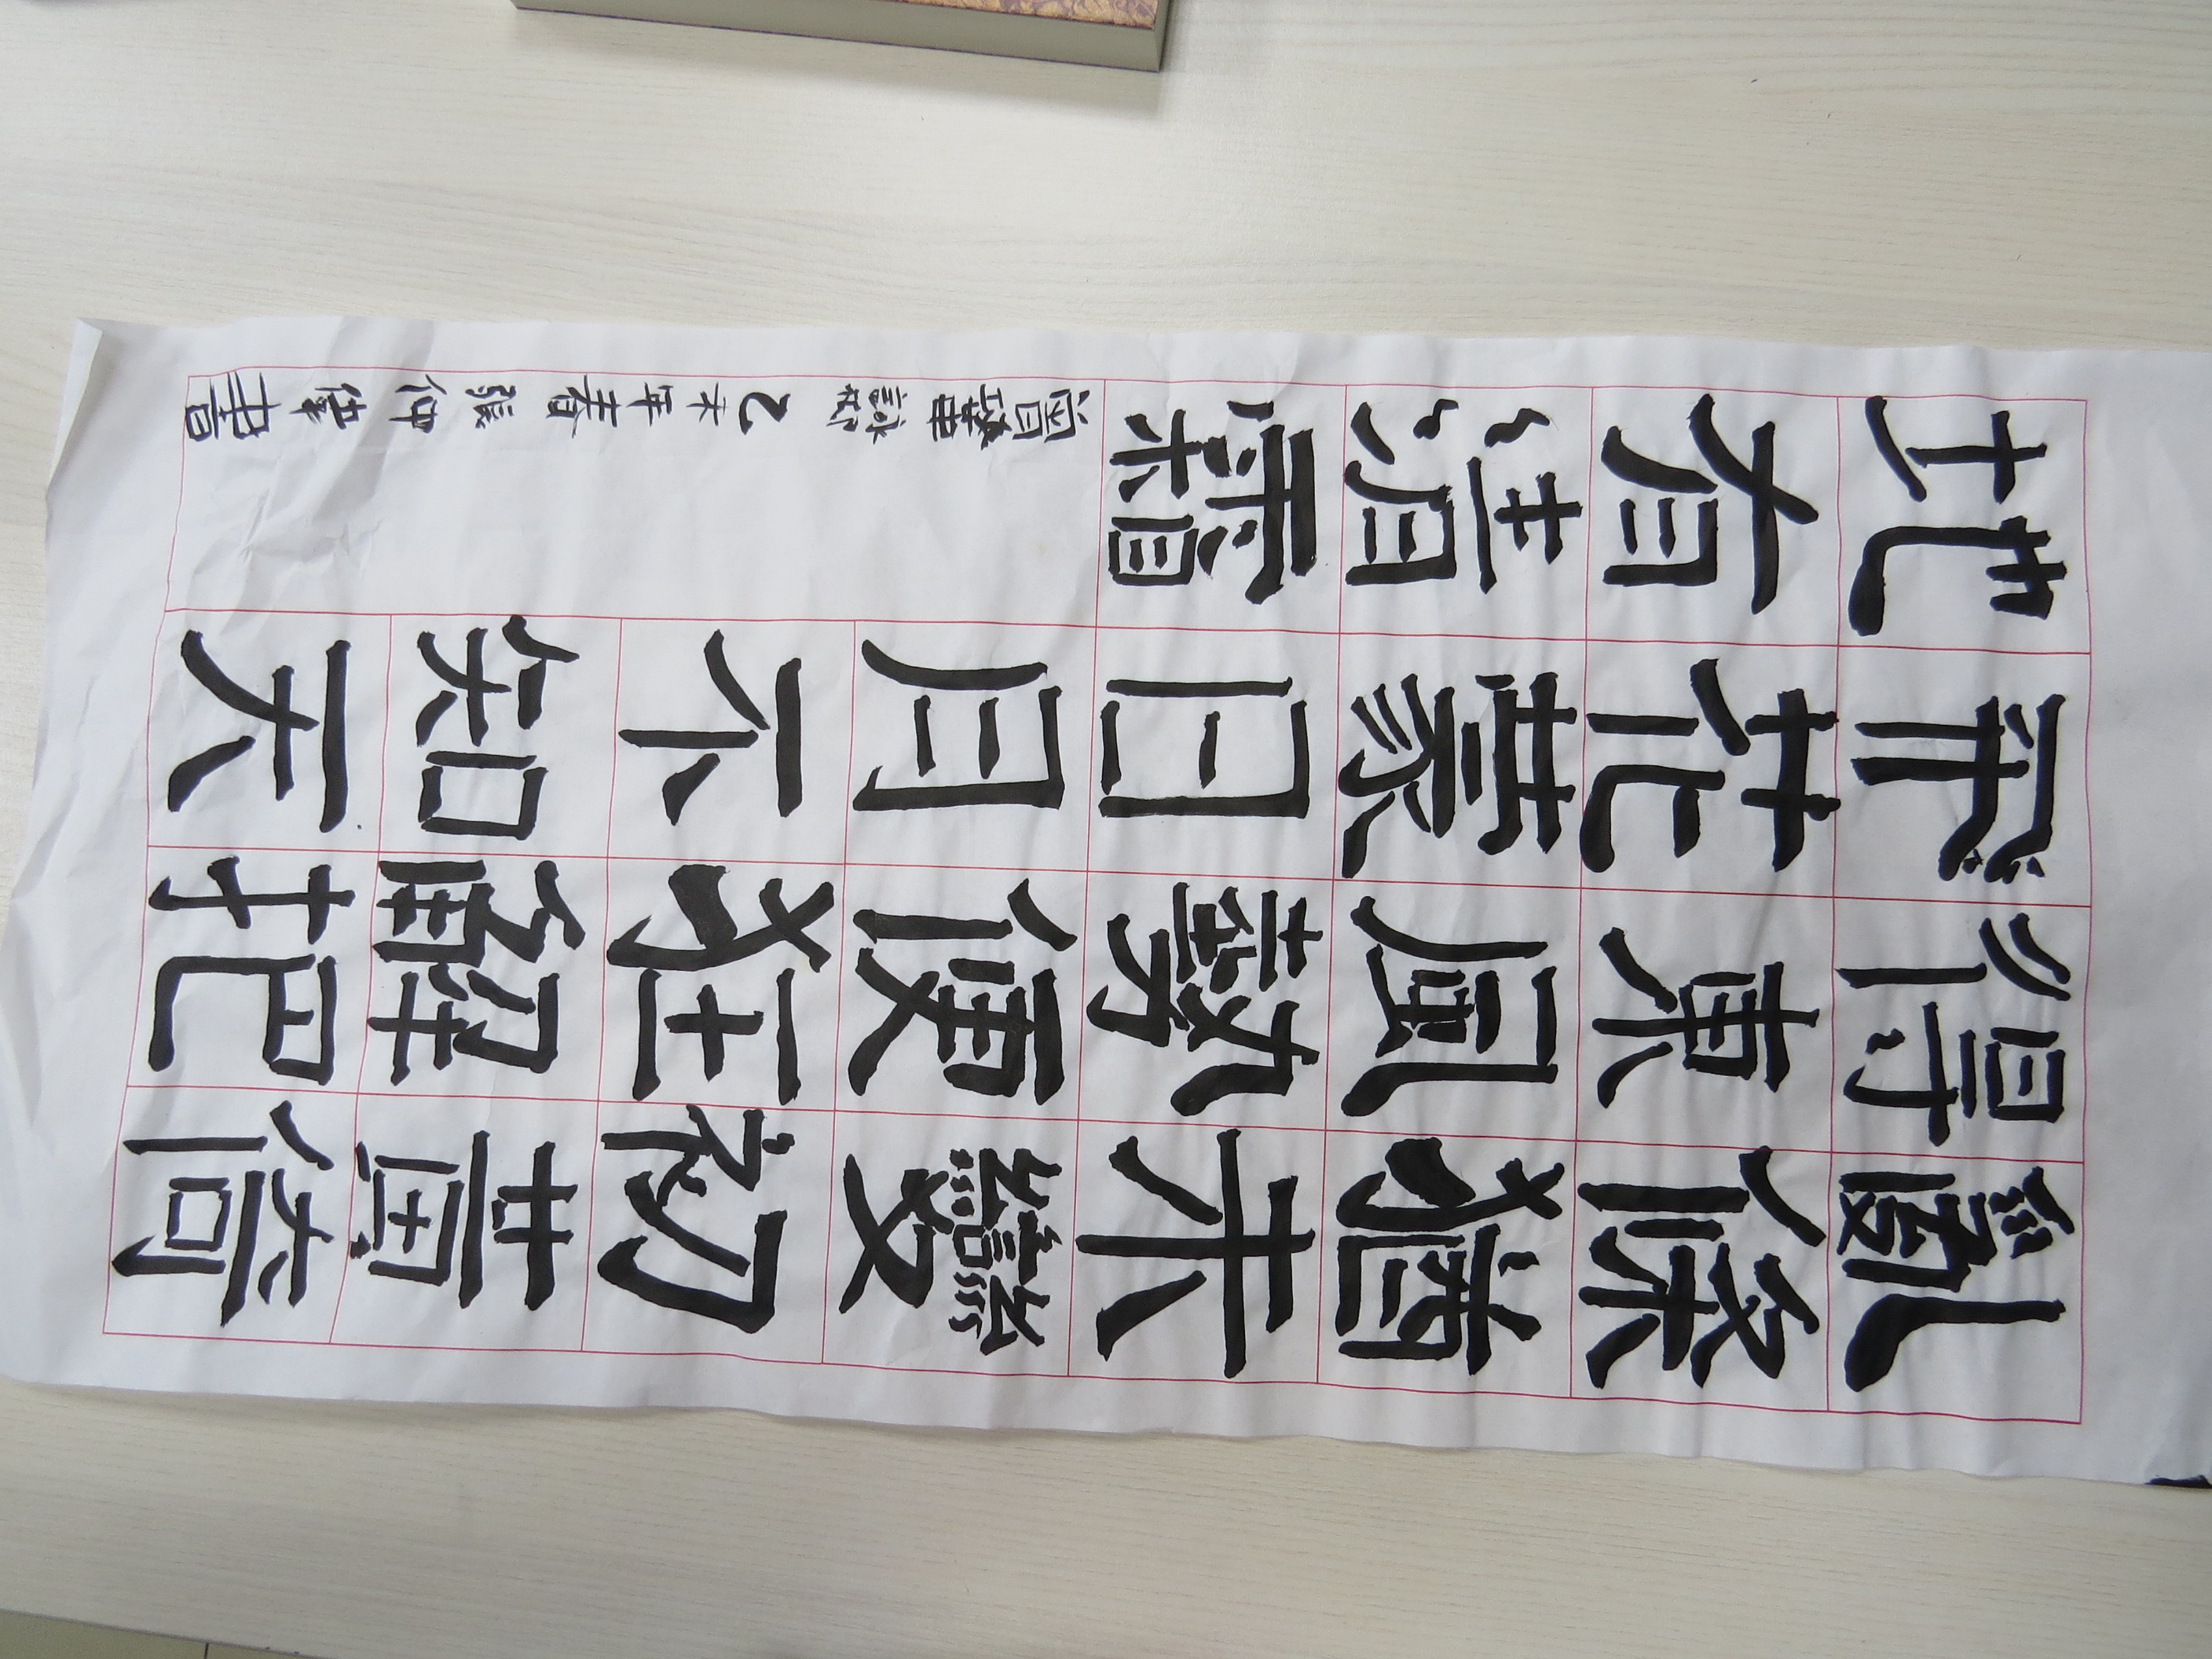 亂條猶未變初黃倚
得東風勢便狂解把
飛花蒙日月不知天
地有清霜
曾鞏詠柳 乙未年春 張仲偉書